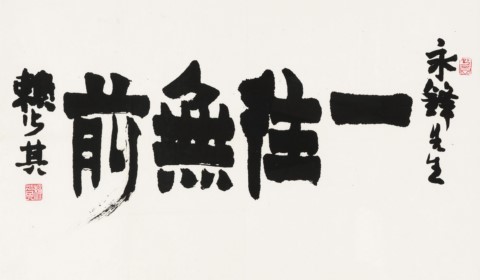 永鋒先生
一往無前
賴少其